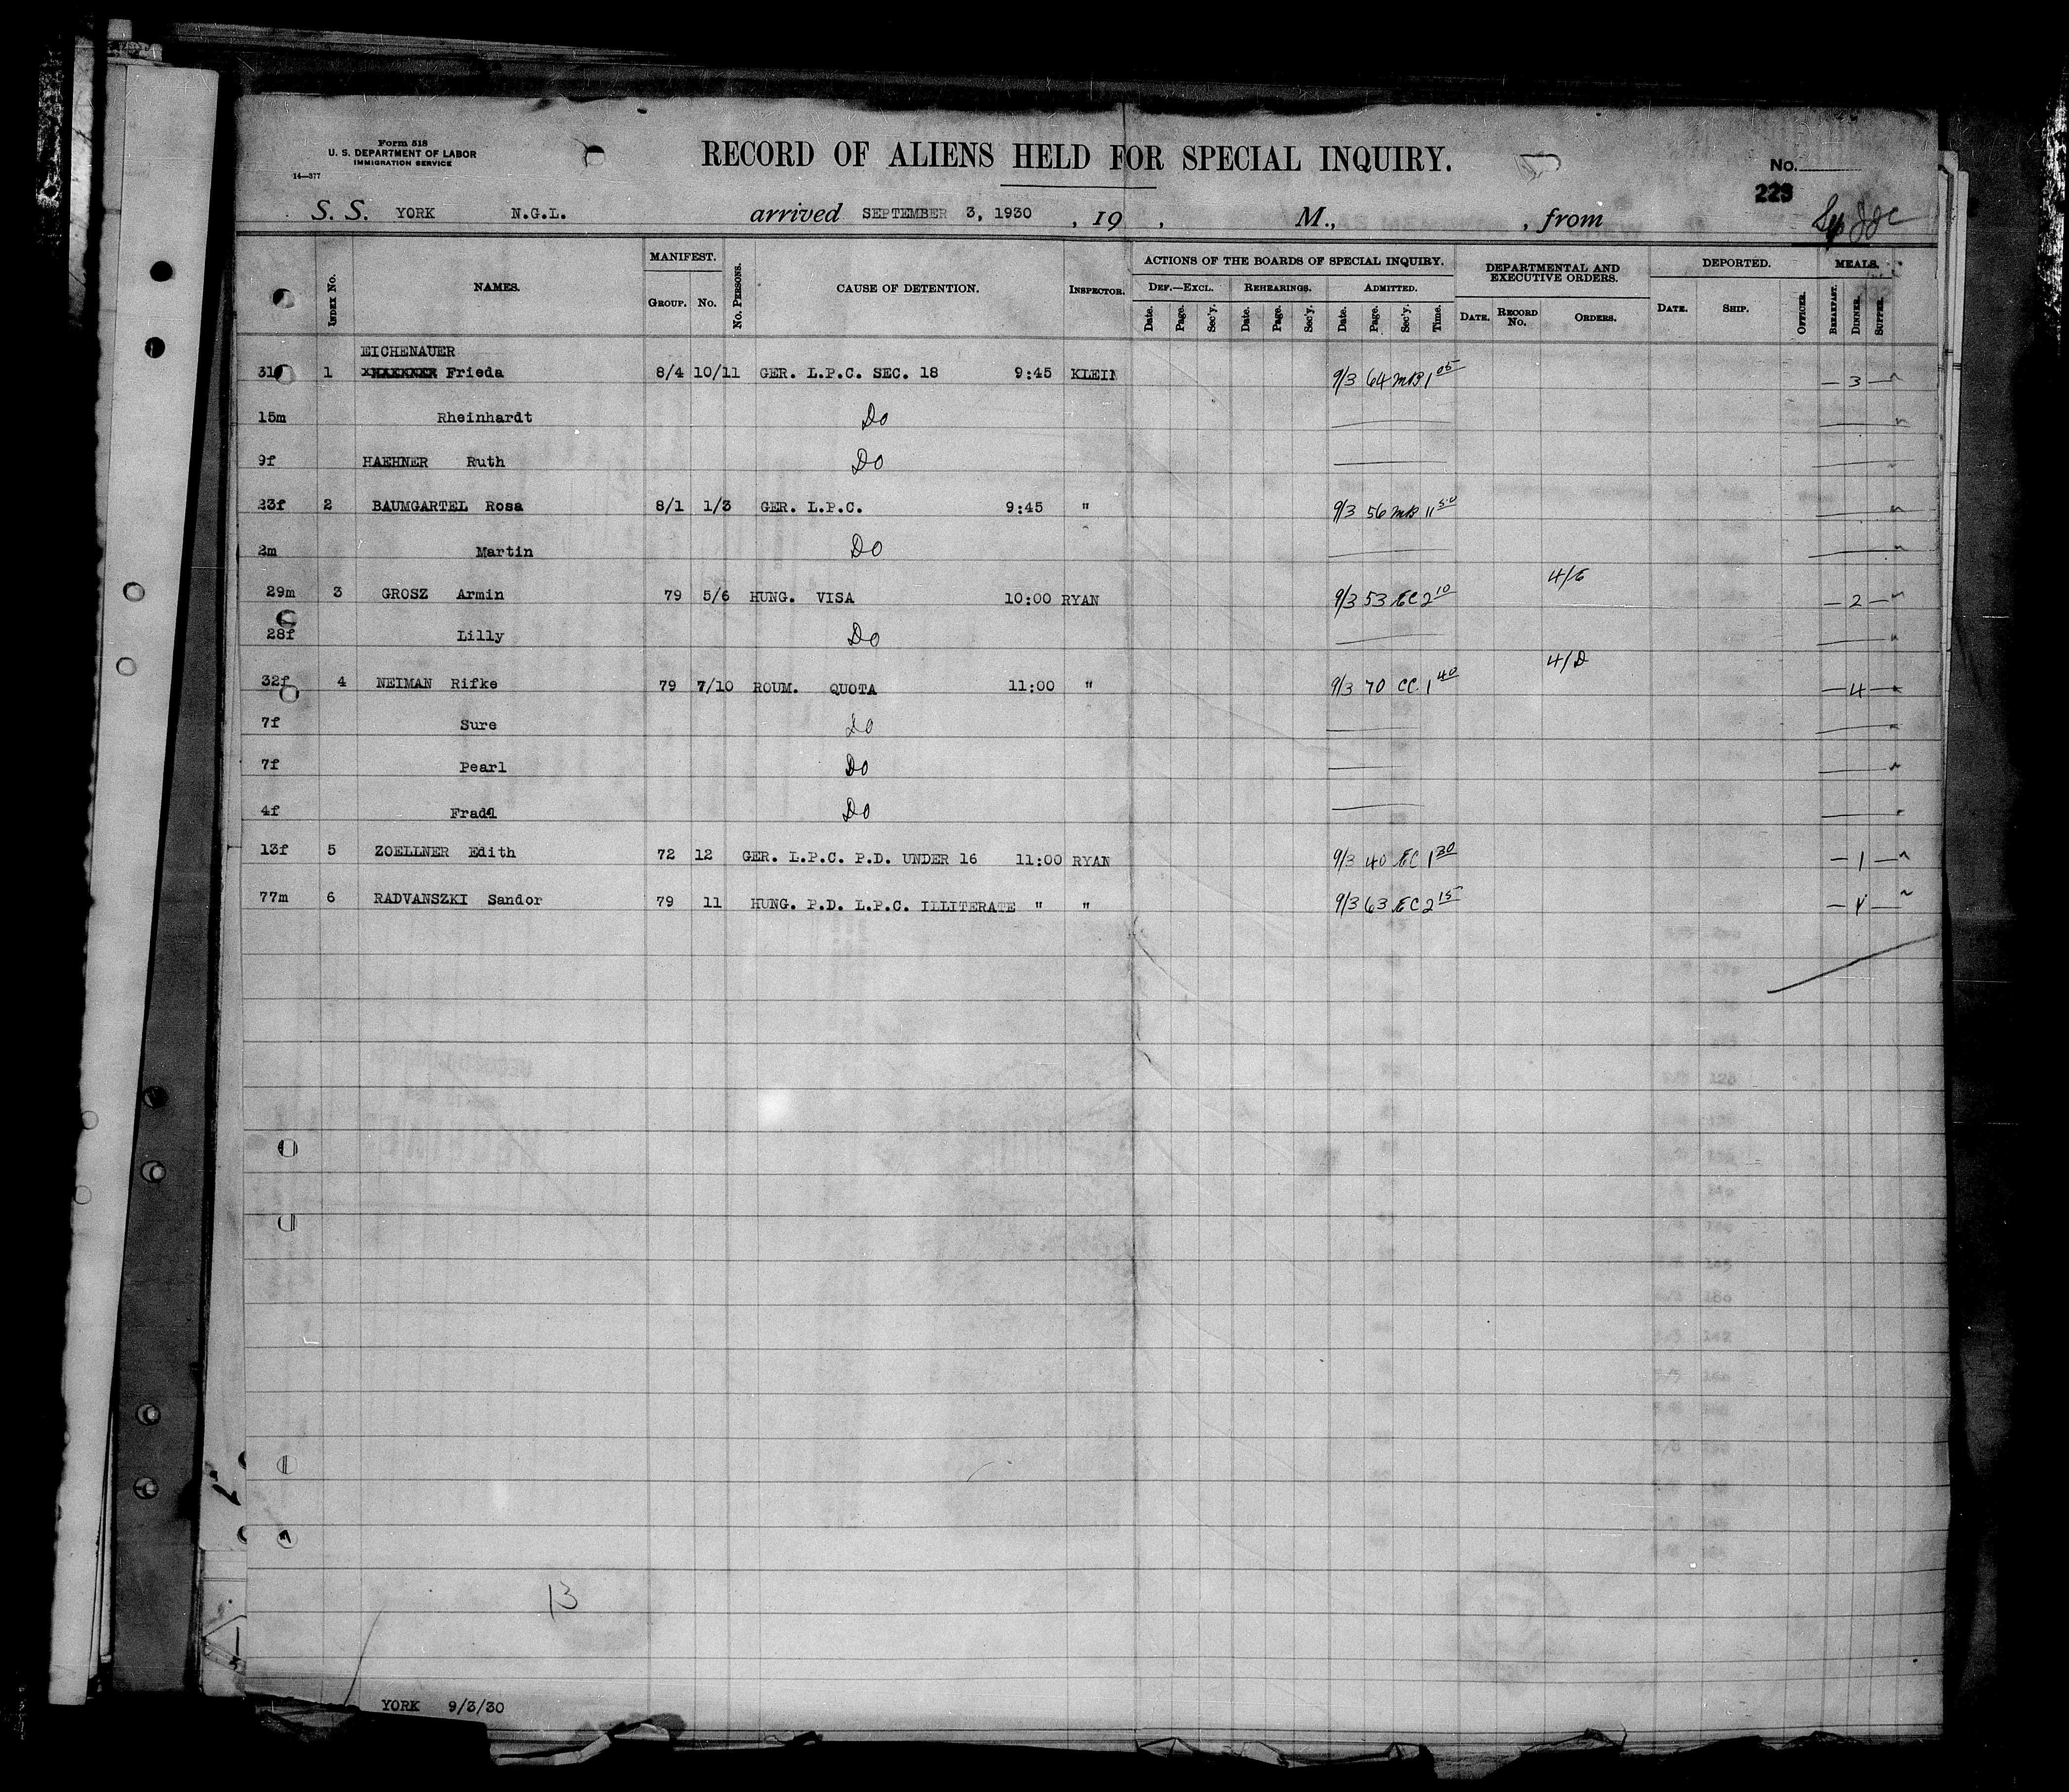 Form 518
U. S. DEPARTMENT OF LABOR
IMMIGRATION SERVICE
14—377
RECORD OF ALIENS HELD FOR SPECIAL INQUIRY.
No.
223
S. S. YORK N.G.L. arrived SEPTEMBER 3, 1930 , 19 , M., , from
INDEX No. NAMES. MANIFEST. GROUP. No. No. PERSONS. CAUSE OF DETENTION. INSPECTOR. ACTIONS OF THE BOARDS OF SPECIAL INQUIRY. DEPARTMENTAL AND EXECUTIVE ORDERS. DEPORTED. MEALS.
DEF.—EXCL. REHEARINGS. ADMITTED.
Date. Page. Sec'y. Date. Page. Sec'y. Date. Page. Sec'y. Time. DATE. RECORD No. ORDERS. DATE. SHIP. OFFICER. BREAKFAST. DINNER. SUPPER.
EICHENAUER
31 1 Frieda 8/4 10/11 GER. L.P.C. SEC. 18 9:45 KLEIN 9/3 64 MB 1 05 — 3 —
15m Rheinhardt Do
9f HAEHNER Ruth Do
23f 2 BAUMGARTEL Rosa 8/1 1/3 GER. L.P.C. 9:45 " 9/3 56 MB 11 50
2m Martin Do
4/6
29m 3 GROSZ Armin 79 5/6 HUNG. VISA 10:00 RYAN 9/3 53 EC 2 10 — 2 —
28f Lilly Do
4/D
32f 4 NEIMAN Rifke 79 7/10 ROUM. QUOTA 11:00 " 9/3 70 CC 1 40 — 4 —
7f Sure Do
7f Pearl Do
4f Fradl Do
13f 5 ZOELLNER Edith 72 12 GER. L.P.C. P.D. UNDER 16 11:00 RYAN 9/3 40 EC 1 30 — 1 —
77m 6 RADVANSZKI Sandor 79 11 HUNG. P.D. L.P.C. ILLITERATE " " 9/3 63 EC 2 15 — 1 —
13
YORK 9/3/30